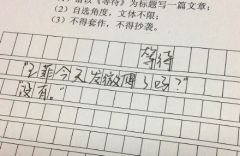 (1)请以《等待》为标题写一篇文章;
(2)自选角度,文体不限;
(3)不得套作,不得抄袭。
等待
"王菲今天发微博了吗?"
没有。"